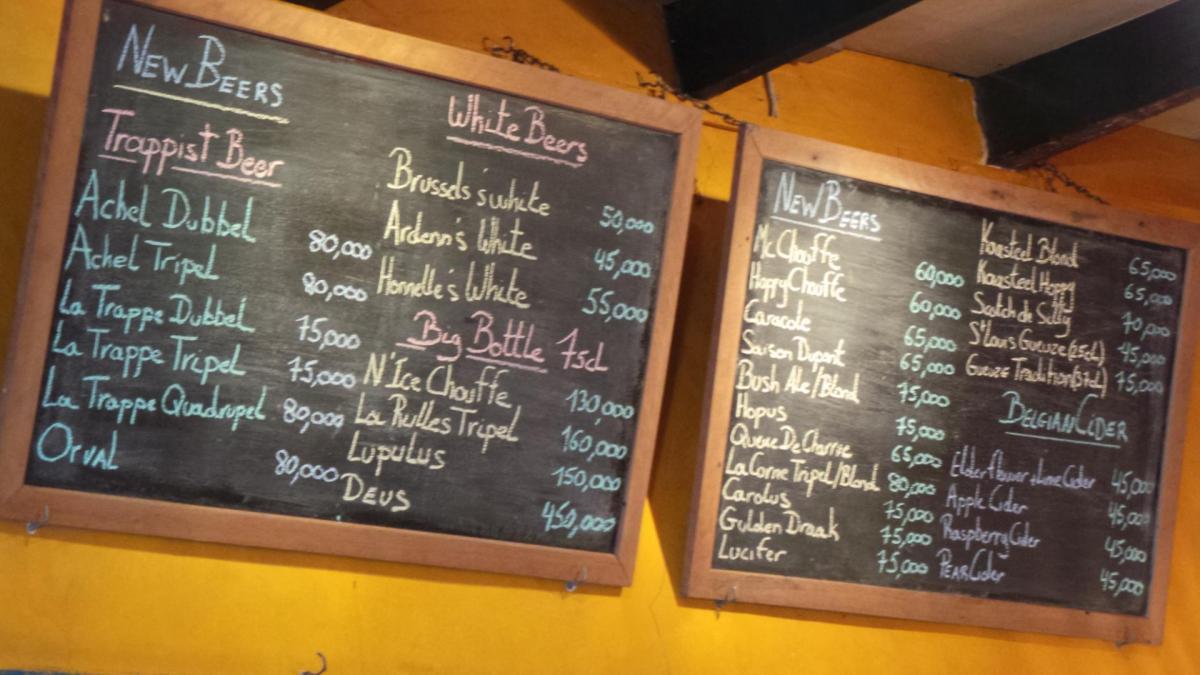 NEW BEERS
Trappist Beer
Achel Dubbel 80,000
Achel Tripel 80,000
La Trappe Dubbel 75,000
La Trappe Tripel 75,000
La Trappe Quadrupel 80,000
Orval 80,000
White Beers
Brussels's white 50,000
Ardenn's White 45,000
Honnelle's White 55,000
Big Bottle 75cl
N'Ice Chouffe 130,000
La Rulles Tripel 160,000
Lupulus 150,000
DEUS 450,000
NEW BEERS
Mc Chouffe 60,000
Hoppy Chouffe 60,000
Caracole 65,000
Saison Dupont 65,000
Bush Ale/Blond 75,000
Hopus 75,000
Queue De Charrue 65,000
La Corne Tripel/Blond 80,000
Carolus 75,000
Gulden Draak 75,000
Lucifer 75,000
Kasteel Blond 65,000
Kasteel Hoppy 65,000
Scotch de Silly 70,000
St Louis Gueuze (25cl) 45,000
Gueuze Tradition (37cl) 75,000
BELGIAN CIDER
Elderflower + Lime Cider 45,000
Apple Cider 45,000
Raspberry Cider 45,000
PEAR Cider 45,000